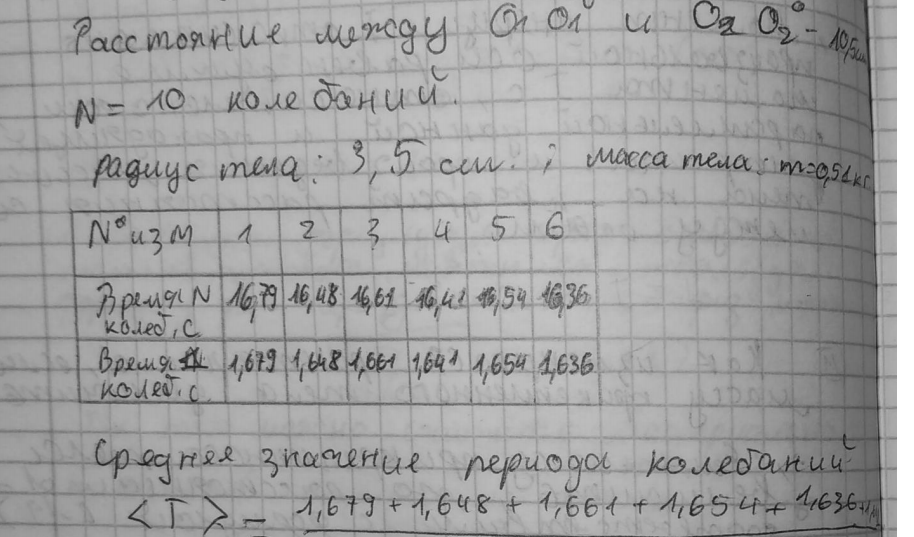 Расстояние между O1 O1° и O2 O2° - 10,5см
N = 10 колебаний.
радиус тела: 3,5 см. ; масса тела: m=0,51кг
N° изм 1 2 3 4 5 6
Время N 16,79 16,48 16,61 16,41 16,54 16,36
колеб, с
Время 1,679 1,648 1,661 1,641 1,654 1,636
колеб. с
Среднее значение периода колебаний
<T> = 1,679 + 1,648 + 1,661 + 1,654 + 1,636+